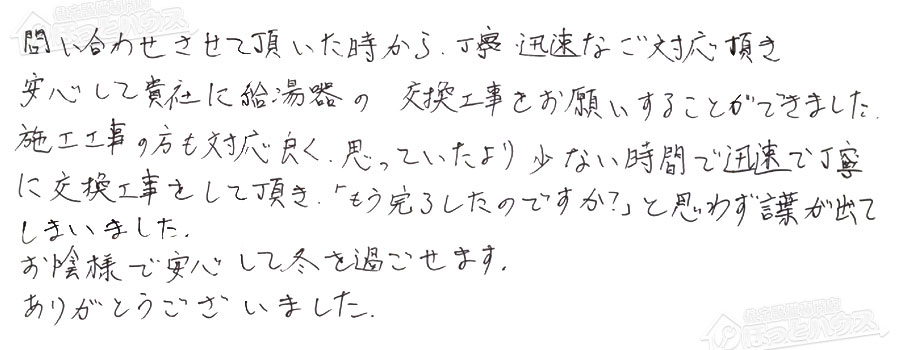 問い合わせさせて頂いた時から、丁寧 迅速なご対応頂き
安心して貴社に給湯器の 交換工事をお願いすることができました。
施工工事の方も対応良く、思っていたより少ない時間で迅速で丁寧
に交換工事をして頂き、「もう完了したのですか?」と思わず言葉が出て
しまいました。
お陰様で安心して冬を過ごせます。
ありがとうございました。
ほっとハウス